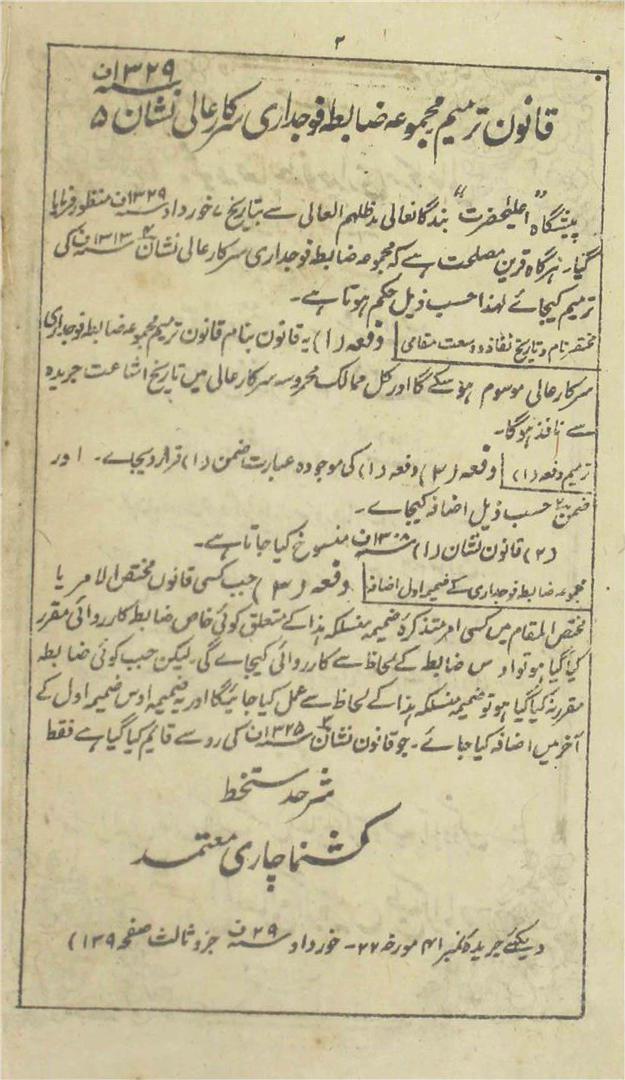 ۲
قانون ترمیم مجموعہ ضابطہ فوجداری سرکار عالی نشان ۵ سنہ ۱۳۲۹ف
پیشگاہ "اعلیٰحضرت" بندگانعالی مدظلہم العالی سے بتاریخ ۷ خورداد سنہ ۱۳۲۹ف منظور فرمایا
گیا۔ ہرگاہ قرین مصلحت ہے کہ مجموعہ ضابطہ فوجداری سرکار عالی نشان ۴ سنہ ۱۳۱۳ف کی
ترمیم کیجائے لہذا حسب ذیل حکم ہوتا ہے۔
مختصر نام و تاریخ نفاذ و وسعت مقامی دفعہ (۱) یہ قانون بنام قانون ترمیم مجموعہ ضابطہ فوجداری
سرکار عالی موسوم ہو سکے گا اور کل ممالک محروسہ سرکار عالی میں تاریخ اشاعت جریدہ
سے نافذ ہوگا۔
ترمیم دفعہ (۱) دفعہ (۲) دفعہ (۱) کی موجودہ عبارت ضمن (۱) قرار دیجاے۔ اور
ضمن ۲ حسب ذیل اضافہ کیجاے۔
(۲) قانون نشان (۱) سنہ ۱۳۰۸ف منسوخ کیا جاتا ہے۔
مجموعہ ضابطہ فوجداری کے ضمیمہ اول اضافہ دفعہ (۳) جب کسی قانون مختص الامر یا
مختص المقام میں کسی امر متذکرۂ ضمیمہ منسلکہ ہذا کے متعلق کوئی خاص ضابطہ کارروائی مقرر
کیا گیا ہو تو اوس ضابطہ کے لحاظ سے کارروائی کیجاے گی۔ لیکن جب کوئی ضابطہ
مقرر نہ کیا گیا ہو تو ضمیمہ منسلکہ ہذا کے لحاظ سے عمل کیا جائیگا اور یہ ضمیمہ اوس ضمیمہ اول کے
آخر میں اضافہ کیا جائے۔ جو قانون نشان ۴ سنہ ۱۳۲۵ف کی رو سے قایم کیا گیا ہے فقط
شرحد ستخط
کشنماچاری معتمد
دیکھئے جریدہ نمبر ۴۱ مورخہ ۲۷۔ خورداد سنہ ۲۹ف جزو ثالث صفحہ ۱۳۹)